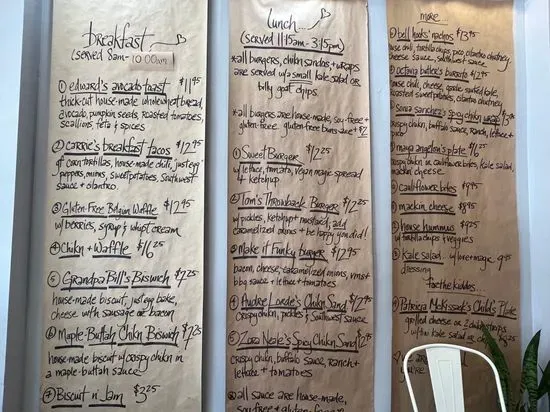 breakfast
(served 8am - 10:00am)
① edward's avocado toast $11.95
thick-cut house-made wholewheat bread,
avocado, pumpkin seeds, roasted tomatoes,
scallions, feta & spices
② carrie's breakfast tacos $12.95
gf corn tortillas, house-made chili, just egg
peppers, mims, sweet potatoes, southwest
sauce + cilantro
③ Gluten-Free Belgian Waffle $12.95
w/ berries, syrup & whipt cream
④ Chikn + Waffle $16.25
⑤ Grandpa Bill's Biswich $7.25
house-made biscuit, just egg bake,
cheese with sausage or bacon
⑥ Maple-Buttah Chikn Biswich $7.25
house-made biscuit w/ crispy chikn in
a maple-buttah sauce
⑦ Biscuit n' Jam $3.25
lunch...
(served 11:15am - 3:15pm)
*all burgers, chikn sandos + wraps
are served w/ a small kale salad or
billy goat chips.
*all burgers are house-made, soy-free +
gluten-free. gluten-free buns are + $2
① Sweet Burger $12.25
w/ lettuce, tomato, vegan magic spread
& ketchup
② Tom's Throwback Burger $12.25
w/ pickles, ketchup + mustard; add
caramelized mims + be happy you did!
③ Make it Funky burger $12.95
bacon, cheese, caramelized mims, vms +
bbq sauce + lettuce + tomatoes
④ Audre Lorde's Chikn Sand $12.95
crispy chikn, pickles & Southwest sauce
⑤ Zora Neale's Spicy Chikn Sand $12
crispy chikn, buffalo sauce, ranch +
lettuce + tomatoes
*all sauces are house-made,
soy-free + gluten-free
more
① bell hooks' nachos $13.95
house chili, tortilla chips, pico, cilantro chutney
cheese sauce,
② octavia butler's burrito
house chili, cheese, garlic sautéed kale,
roasted sweet potatoes, cilantro chutney
③ sonia sanchez's spicy chikn wrap
crispy chikn, buffalo sauce, ranch, lettuce +
pico
④ maya angelou's plate
crispy chikn or cauliflower bites, kale salad,
mackin cheese
⑤ cauliflower bites $9.95
⑥ mackin cheese $8.95
⑦ house hummus $9.25
w/ tortilla chips + veggies
⑧ kale salad.. w/ love + mage 9.95
dressing
for the kiddies..
① Patricia McKissack's Child's Plate
grilled cheese or 2 chikn strips
w/ kale salad or chips